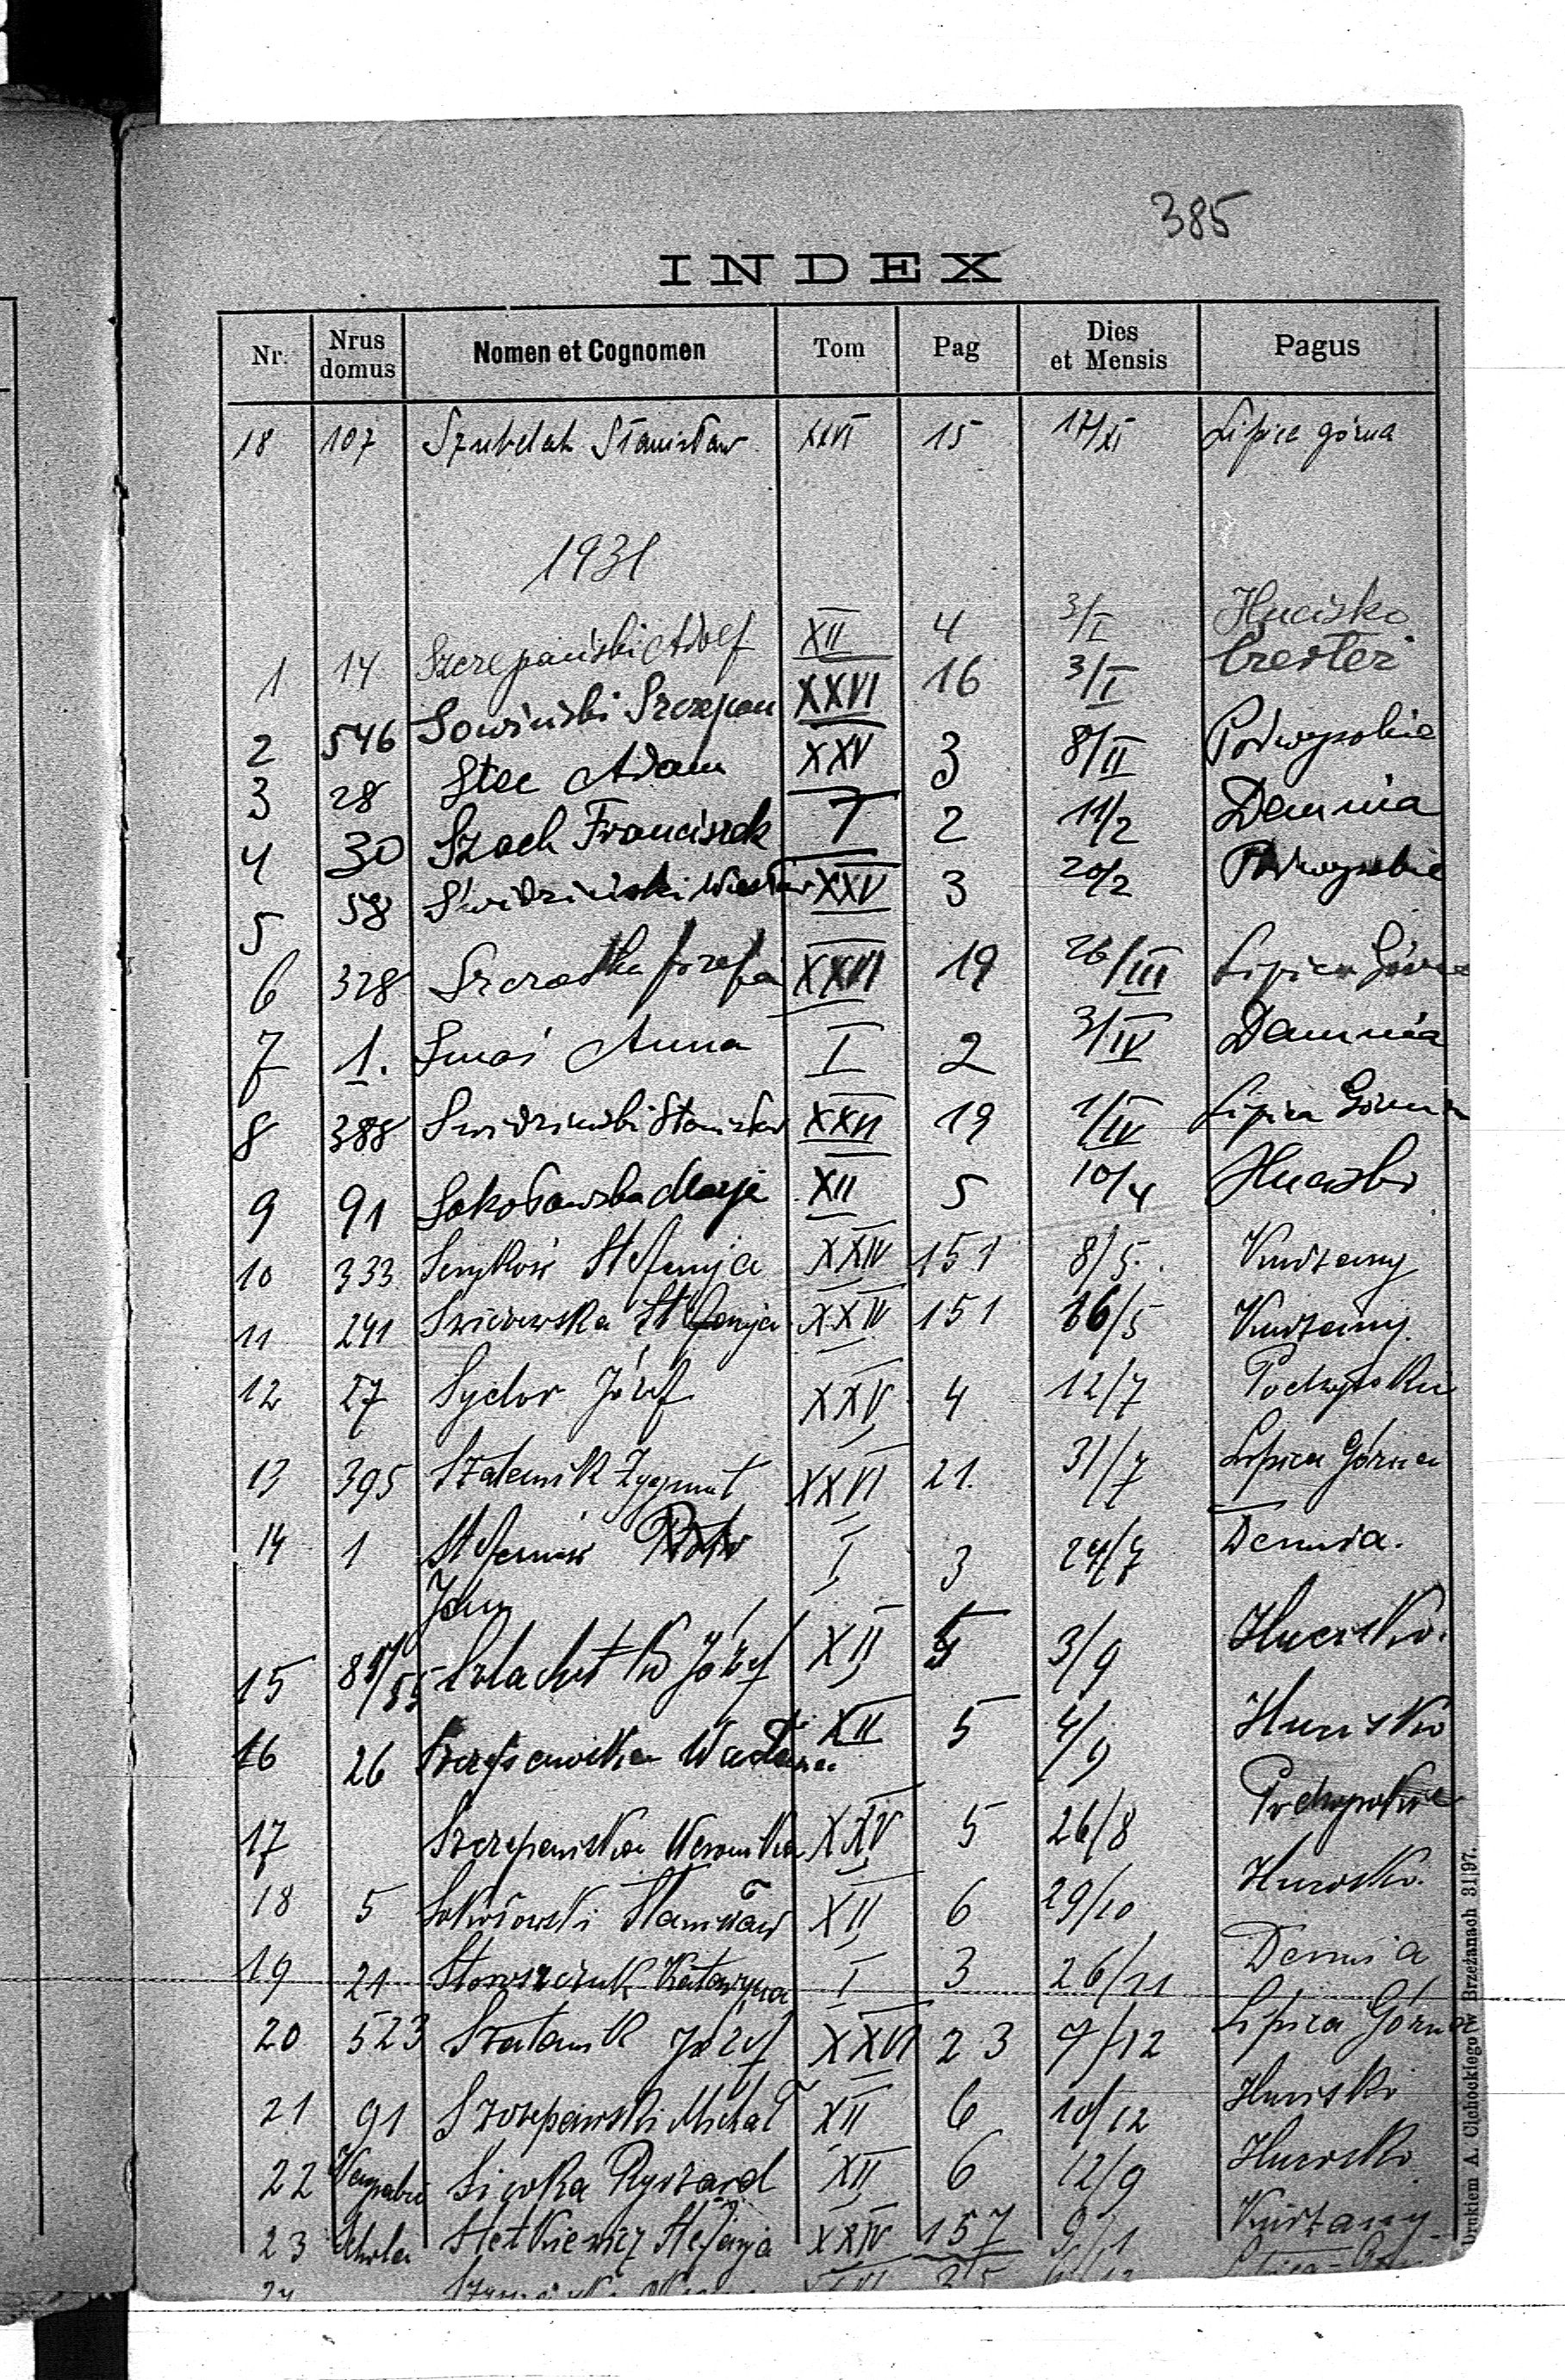 385
INDEX
Nr. Nrus domus Nomen et Cognomen Tom Pag Dies et Mensis Pagus
18 107 Szubelak Stanisław XXVI 15 17/XI Lipica górna
1931
1 14 Szczepański Adolf XII 4 3/I Hucisko
2 546 Sowiński Szczepan XXVI 16 3/I
3 28 Stec Adam XXV 3 8/II Podwysokie
4 30 Szach Franciszek I 2 11/2 Demnia
5 58 Świdziński Wiesław XXV 3 20/2 Podwysokie
6 328 Józefa XXVI 19 26/III Lipica Górna
7 1. Smaś Anna I 2 3/IV Demnia
8 388 Swidziński Stanisław XXVI 19 1/IV Lipica Górna
9 91 Sokołowska Marja XII 5 10/4 Hucisko
10 333 Senyków Stefanja XXIV 151 8/5. Kunzany
11 241 Stefanja XXIV 151 16/5 Kunzany
12 27 Sydor Józef XXV 4 12/7 Podwysokie
13 395 Szatanik Zygmunt XXVI 21. 31/7 Lipica Górna
14 1 Stefaniów I 3 24/7 Demnia.
Jan
15 Szlachetko Józef XII 5 3/9 Hucisko.
16 26 Szczepańska XII 5 4/9 Hucisko
17 Szczepańska Weronika XXV 5 26/8 Podwysokie
18 5 Sokołowski Stanisław XII 6 29/10 Hucisko.
19 21 Katarzyna I 3 26/11 Demnia
20 523 Szatanik Józef XXVI 23 7/12 Lipica Górna
21 91 Szczepański Michał XII 6 10/12 Hucisko
22 Sicoka Ryszard XII 6 12/9 Hucisko
23 Stetkiewicz Stefanja XXIV 157 Kunzany
Drukiem A. Cichockiego w Brzeżanach 31|97.